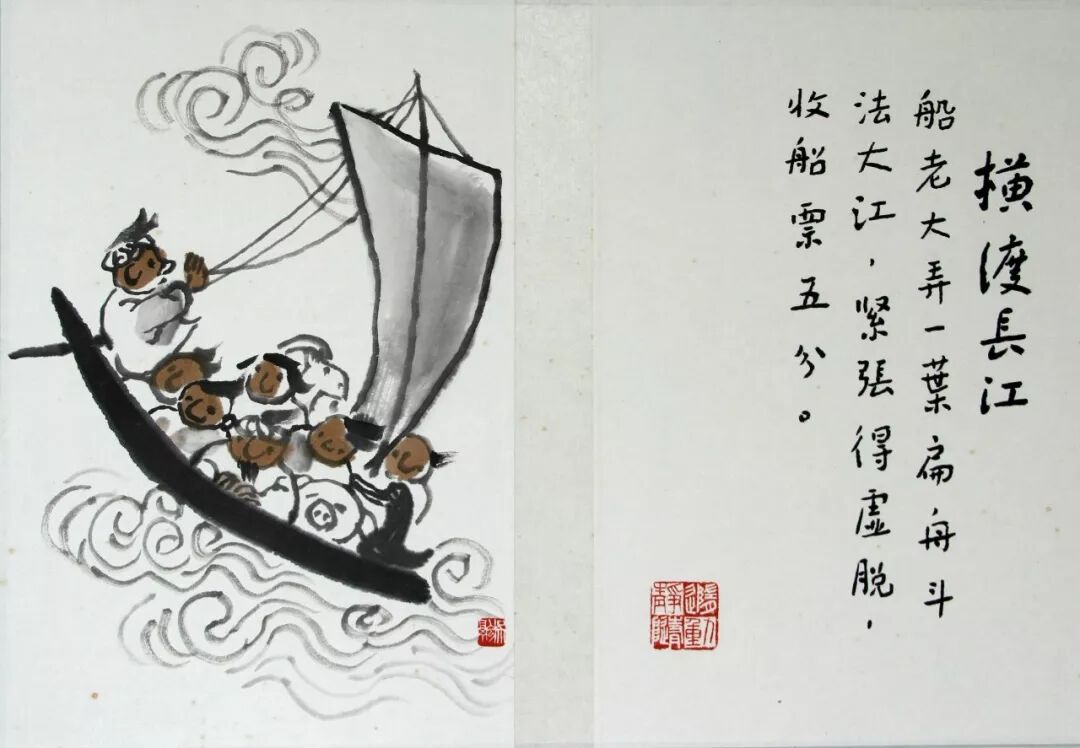 横渡長江
船老大弄一葉扁舟斗
法大江，紧張得虚脱，
收船票五分。